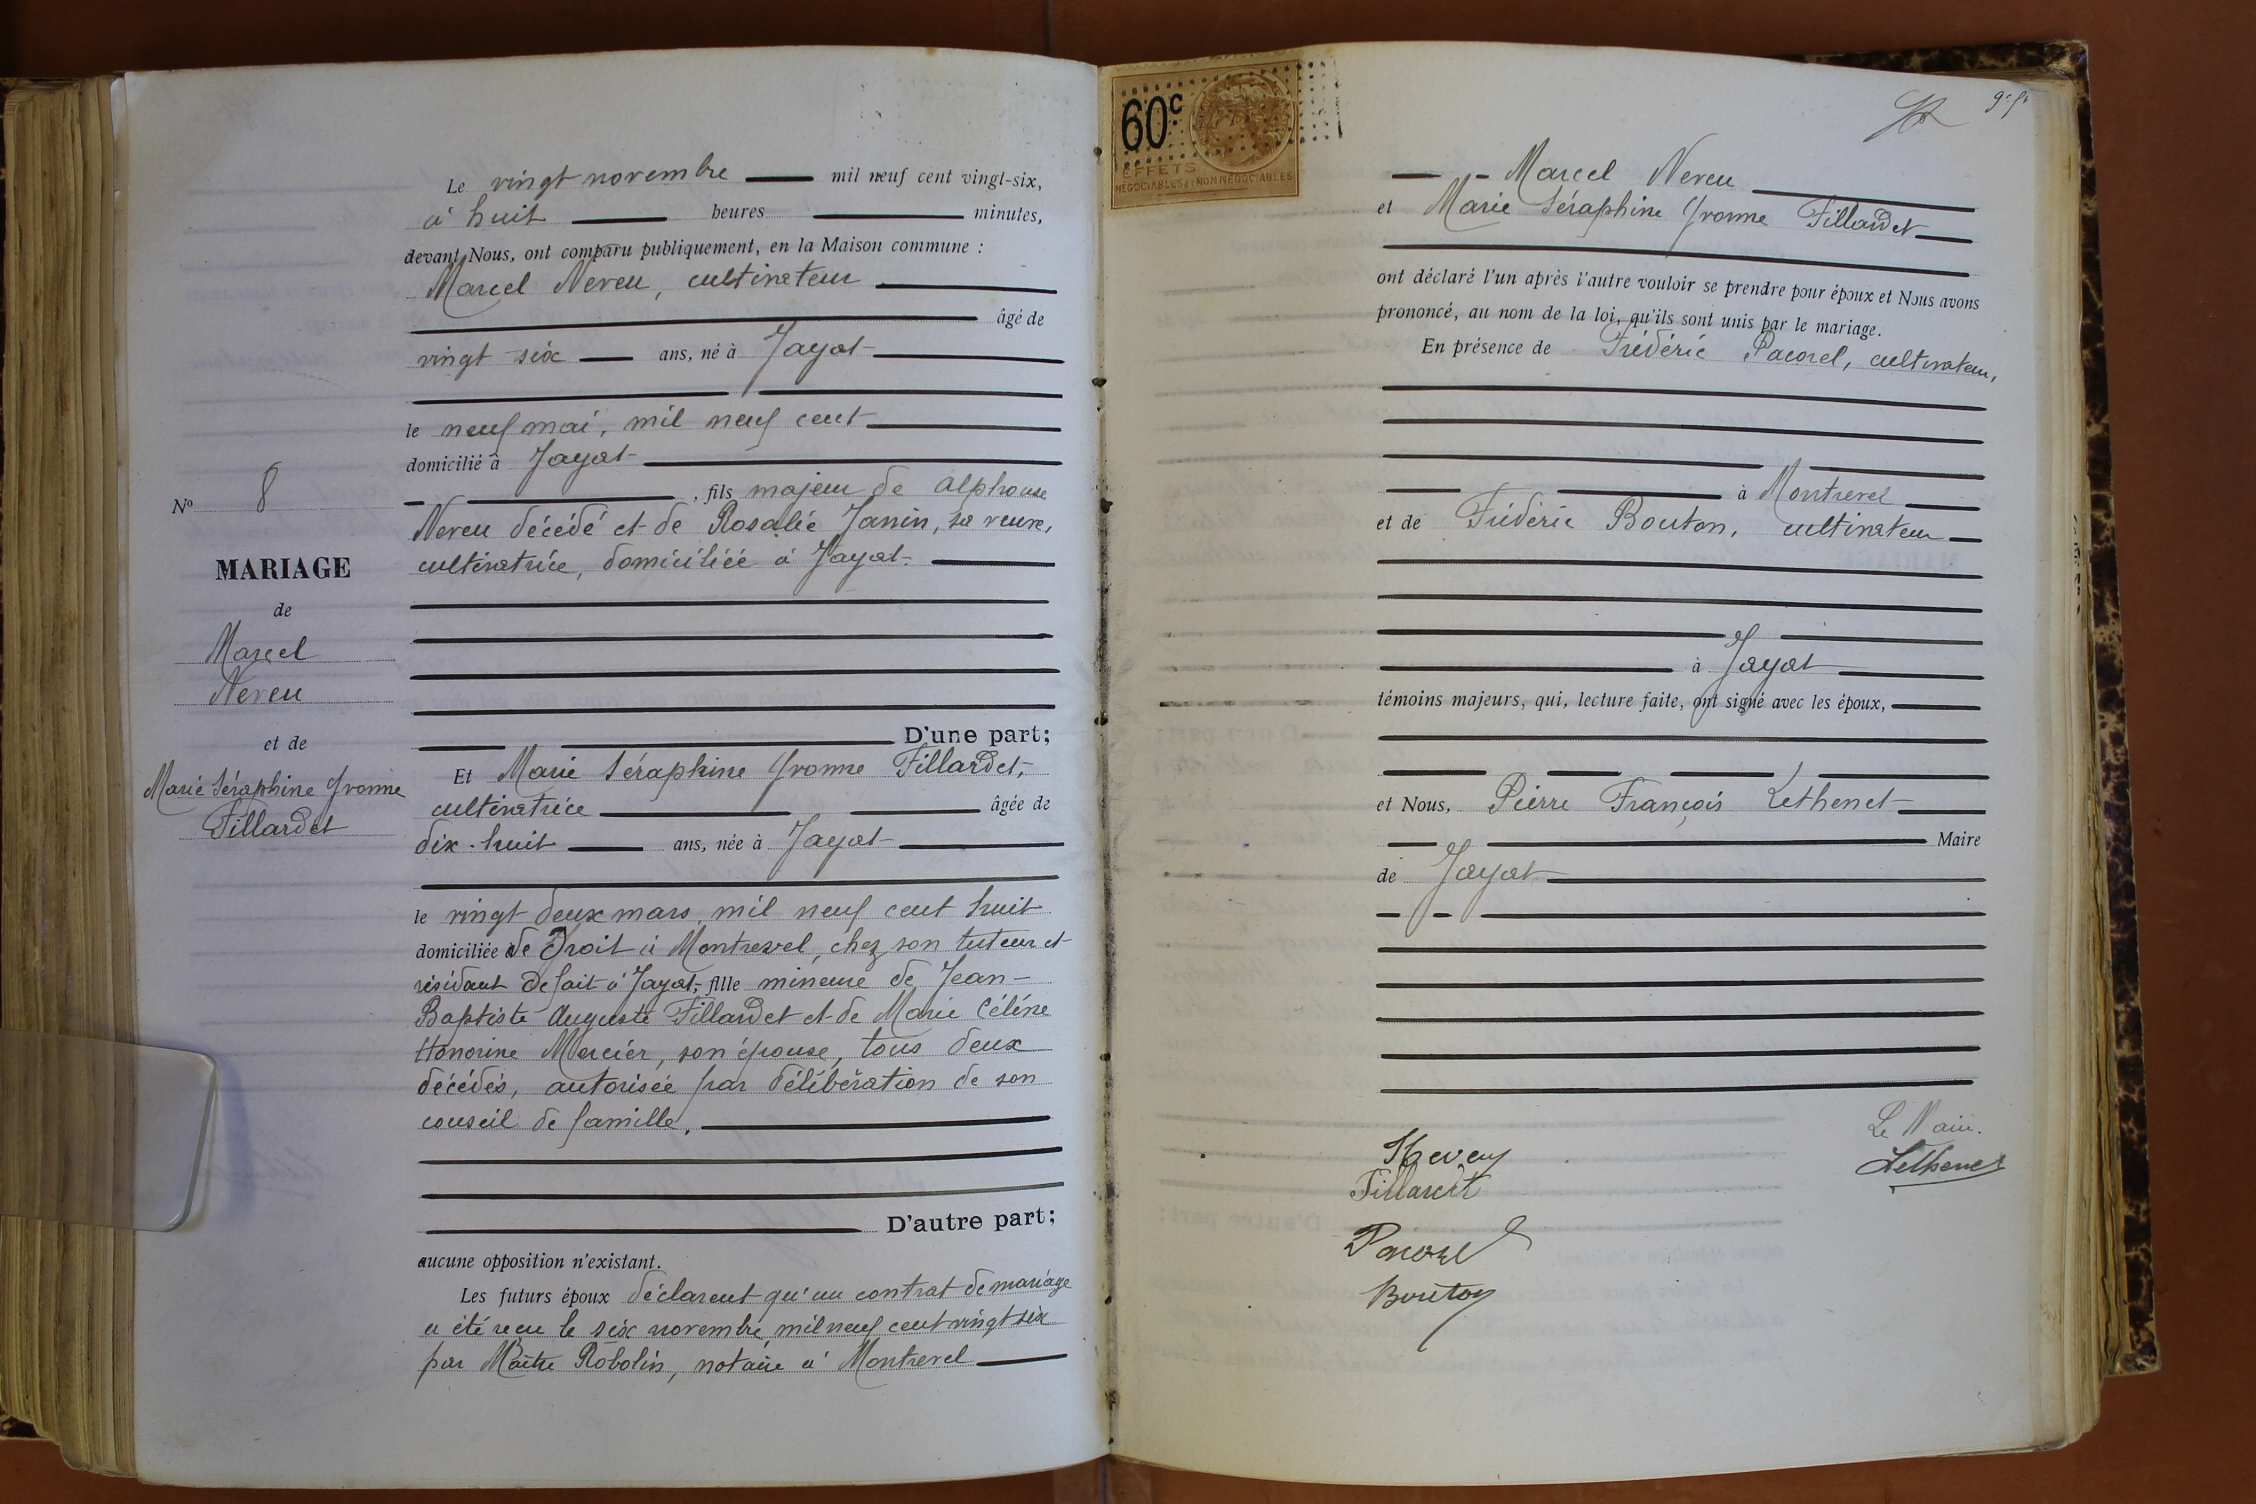 Le vingt novembre mil neuf cent vingt-six,
à huit heures minutes,
devant Nous, ont comparu publiquement, en la Maison commune :
Marcel Neveu, cultivateur
âgé de
vingt-six ans, né à Jayat
le neuf mai, mil neuf cent
domicilié à Jayat
, fils majeur de Alphonse
Neveu décédé et de Rosalie Janin, sa veuve,
cultivatrice, domiciliée à Jayat.
D'une part;
Et Marie Séraphine Yvonne Fillardet,
cultivatrice âgée de
dix-huit ans, née à Jayat
le vingt deux mars, mil neuf cent huit
domiciliée de droit à Montrevel, chez son tuteur et
résidant de fait à Jayat, fille mineure de Jean-
Baptiste Auguste Fillardet et de Marie Céline
Honorine Mercier, son épouse, tous deux
décédés, autorisée par délibération de son
conseil de famille.
D'autre part;
aucune opposition n'existant.
Les futurs époux déclarent qu'un contrat de mariage
a été reçu le six novembre, mil neuf cent vingt six
par Maître Robolin, notaire à Montrevel
No 8
MARIAGE
de
Marcel
Neveu
et de
Marie Séraphine Yvonne
Fillardet
60c
EFFETS
NÉGOCIABLES ET NON NÉGOCIABLES
Marcel Neveu
et Marie Séraphine Yvonne Fillardet
ont déclaré l'un après l'autre vouloir se prendre pour époux et Nous avons
prononcé, au nom de la loi, qu'ils sont unis par le mariage.
En présence de Frédéric Pacorel, cultivateur,
à Montrevel
et de Frédéric Bouton, cultivateur
à Jayat
témoins majeurs, qui, lecture faite, ont signé avec les époux,
et Nous, Pierre François Lethenet
Maire
de Jayat
Le Maire.
Lethenet
Neveu
Fillardet
Pacorel
Bouton